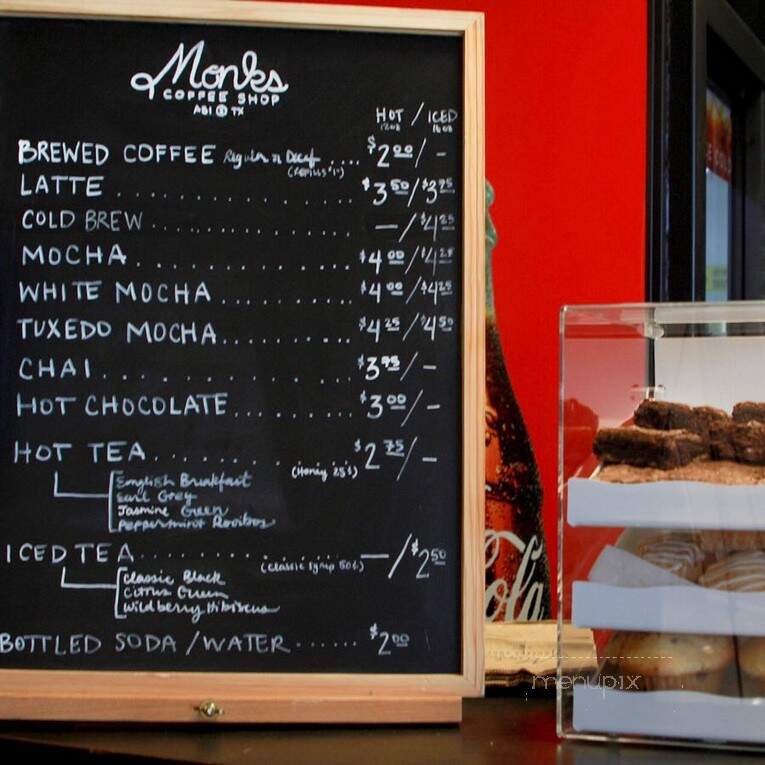 Monks
COFFEE SHOP
ABI TX
HOT / ICED
12oz 16oz
BREWED COFFEE Regular or Decaf .... $2.00 / -
(refills $1)
LATTE .................... $3.50 / $3.75
COLD BREW ................ - / $4.25
MOCHA .................... $4.00 / $4.25
WHITE MOCHA .............. $4.00 / $4.25
TUXEDO MOCHA ............. $4.25 / $4.50
CHAI ..................... $3.75 / -
HOT CHOCOLATE ............ $3.00 / -
HOT TEA .................. $2.75 / -
(Honey 25¢)
English Breakfast
Earl Grey
Jasmine Green
Peppermint Rooibos
ICED TEA ................. - / $2.50
(Classic syrup 50¢)
Classic Black
Citrus Green
Wildberry Hibiscus
BOTTLED SODA / WATER ...... $2.00
Cola
menupix